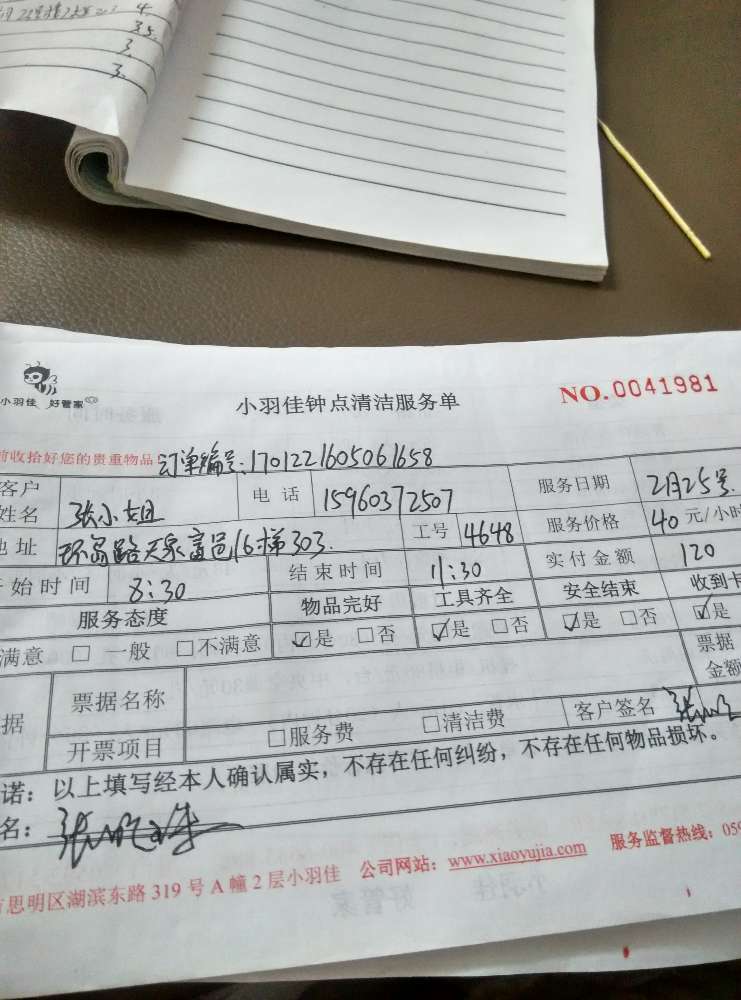 4.
35.
3.
3.
小羽佳 好管家
小羽佳钟点清洁服务单
NO.0041981
前收拾好您的贵重物品!
订单编号:1701221605061658
客户姓名 张小姐 电话 15960372507 服务日期 2月25号.
地址 环岛路天泉富邑16梯303. 工号 4648 服务价格 40元/小时
开始时间 8:30 结束时间 11:30 实付金额 120
服务态度 物品完好 工具齐全 安全结束 收到卡
满意 □ 一般 □不满意 ☑是 □否 ☑是 □否 ☑是 □否 ☑是
据 票据名称 票据金额
开票项目 □服务费 □清洁费 客户签名
诺：以上填写经本人确认属实，不存在任何纠纷，不存在任何物品损坏。
名：
思明区湖滨东路 319 号 A 幢 2 层小羽佳 公司网站：www.xiaoyujia.com 服务监督热线：059